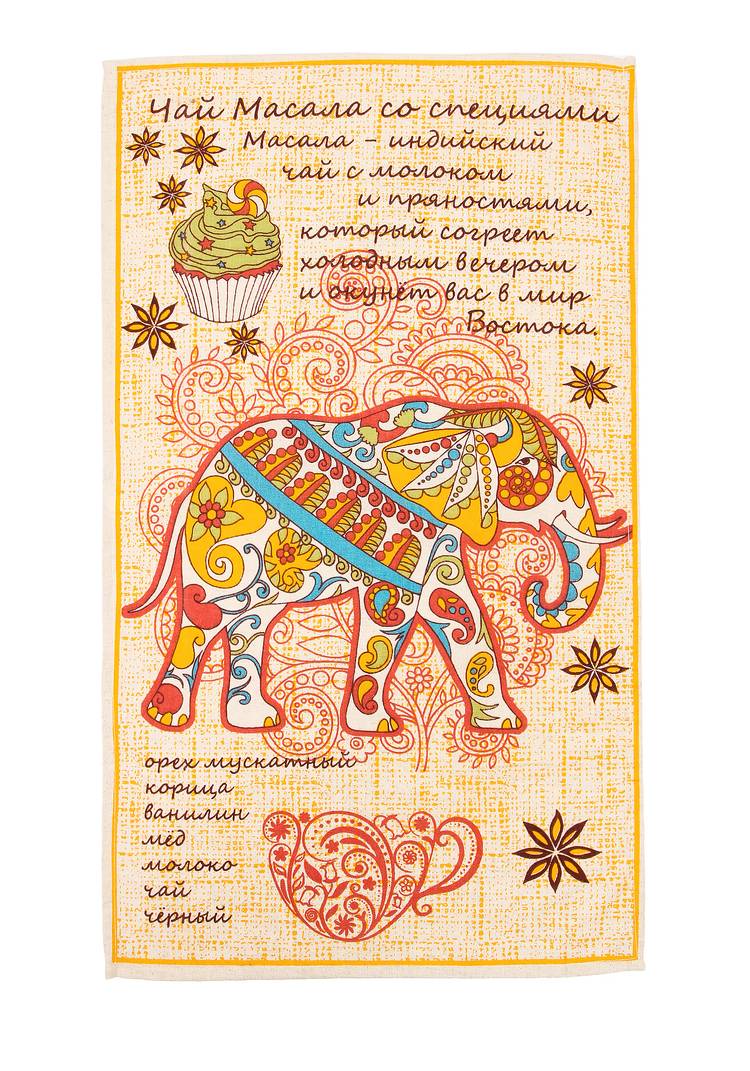 Чай Масала со специями
Масала - индийский
чай с молоком
и пряностями,
который согреет
холодным вечером
и окунёт вас в мир
Востока.
орех мускатный
корица
ванилин
мёд
молоко
чай
чёрный